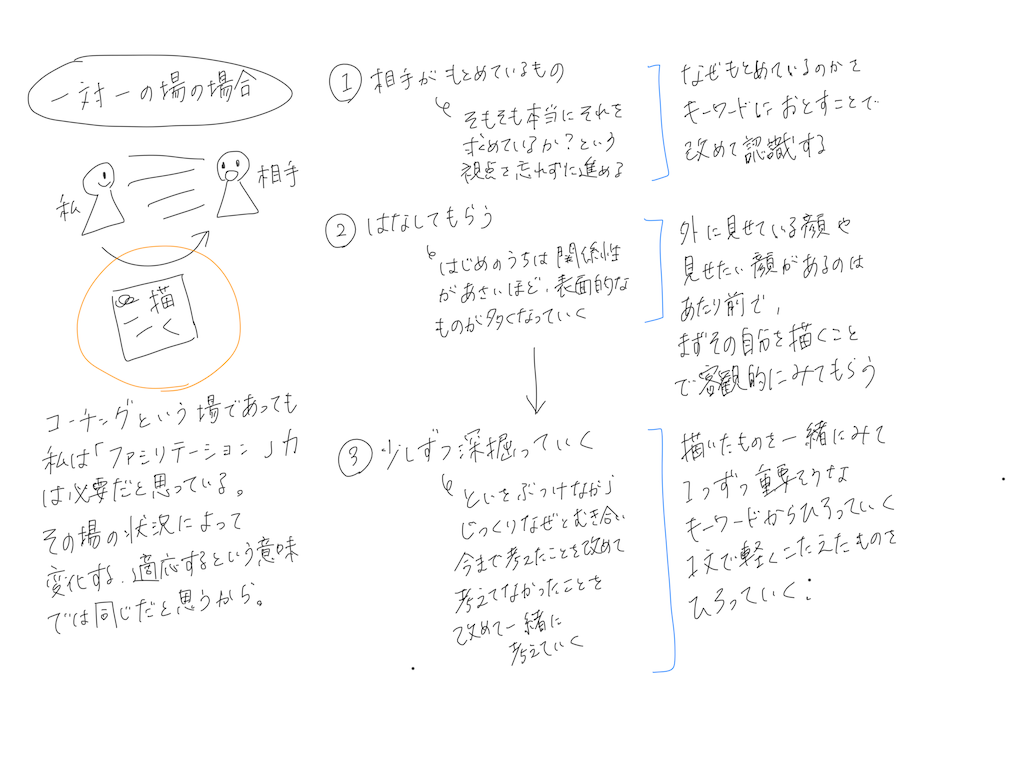 一対一の場の場合
私
相手
描く
コーチングという場であっても
私は「ファシリテーション」力
は必要だと思っている。
その場の状況によって
変化する、適応するという意味
では同じだと思うから。
① 相手がもとめているもの
そもそも本当にそれを
求めているか?という
視点を忘れずに進める
なぜもとめているのかを
キーワードにおとすことで
改めて認識する
② はなしてもらう
はじめのうちは関係性
があさいほど、表面的な
ものが多くなっていく
外に見せている顔や
見せたい顔があるのは
あたり前で、
まずその自分を描くこと
で客観的にみてもらう
③ 少しずつ深掘っていく
といをぶつけながら
じっくりなぜとむき合い
今まで考えたことを改めて
考えてなかったことを
改めて一緒に
考えていく
描いたものを一緒にみて
1つずつ重要そうな
キーワードからひろっていく
1文で軽くこたえたものを
ひろっていく: